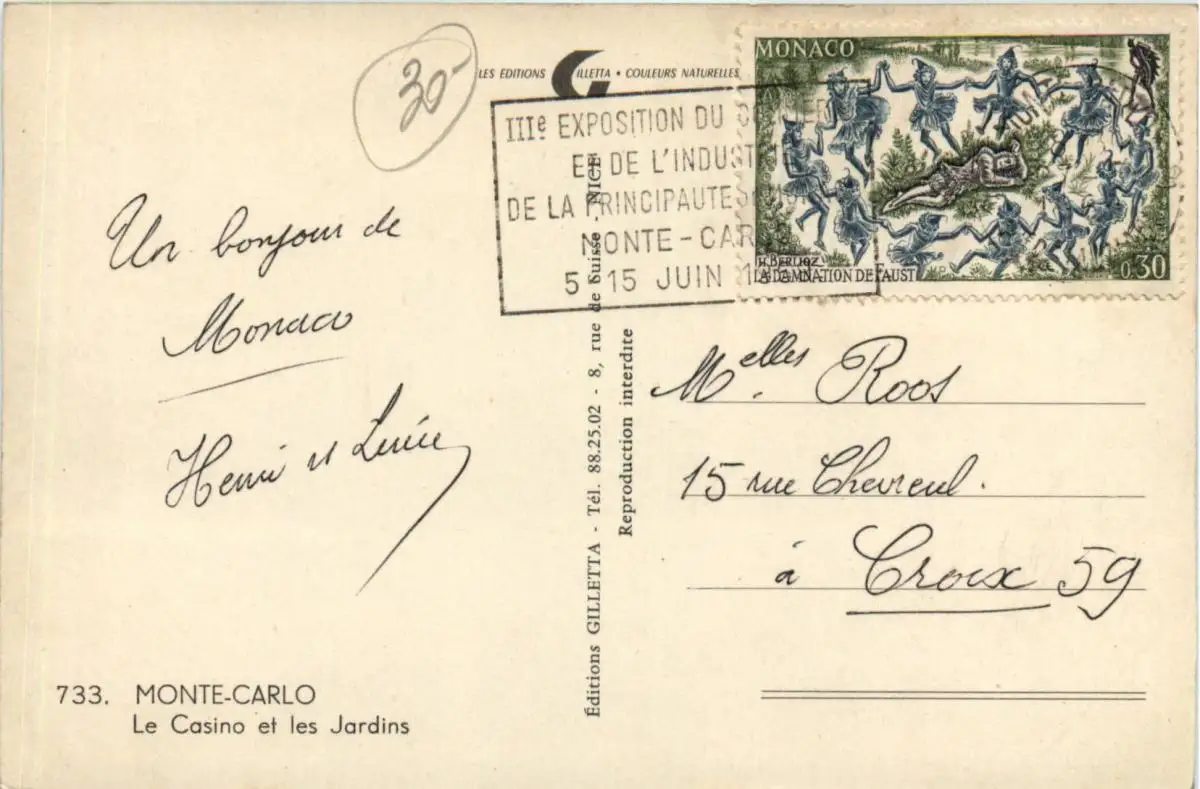 30-
LES EDITIONS GILLETTA • COULEURS NATURELLES
IIIe EXPOSITION DU
ET DE L'INDUSTRIE
DE LA PRINCIPAUTE
MONTE-CARLO
5 15 JUIN
MONACO
H. BERLIOZ
LA DAMNATION DE FAUST
0,30
Un bonjour de
Monaco
Henri et Lucie
Melles Roos
15 rue Chevreul.
à Croix 59
Éditions GILLETTA - Tél. 88.25.02 - 8, rue de Suisse - NICE
Reproduction interdite
733. MONTE-CARLO
Le Casino et les Jardins